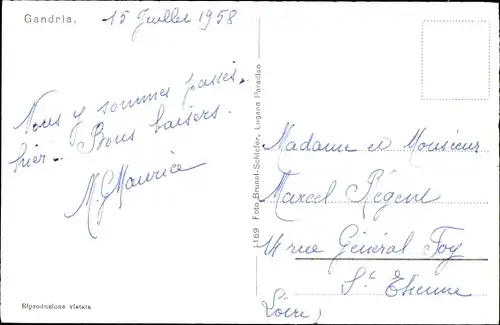 Gandria,
15 Juillet 1958
Nous y sommes passés,
hier. Bons baisers.
M. G Maurice
1169 Foto Brunel-Schiefer, Lugano Paradiso
Madame et Monsieur
Marcel Régent
14 rue Général Foy
St Etienne
(Loire)
Riproduzione vietata